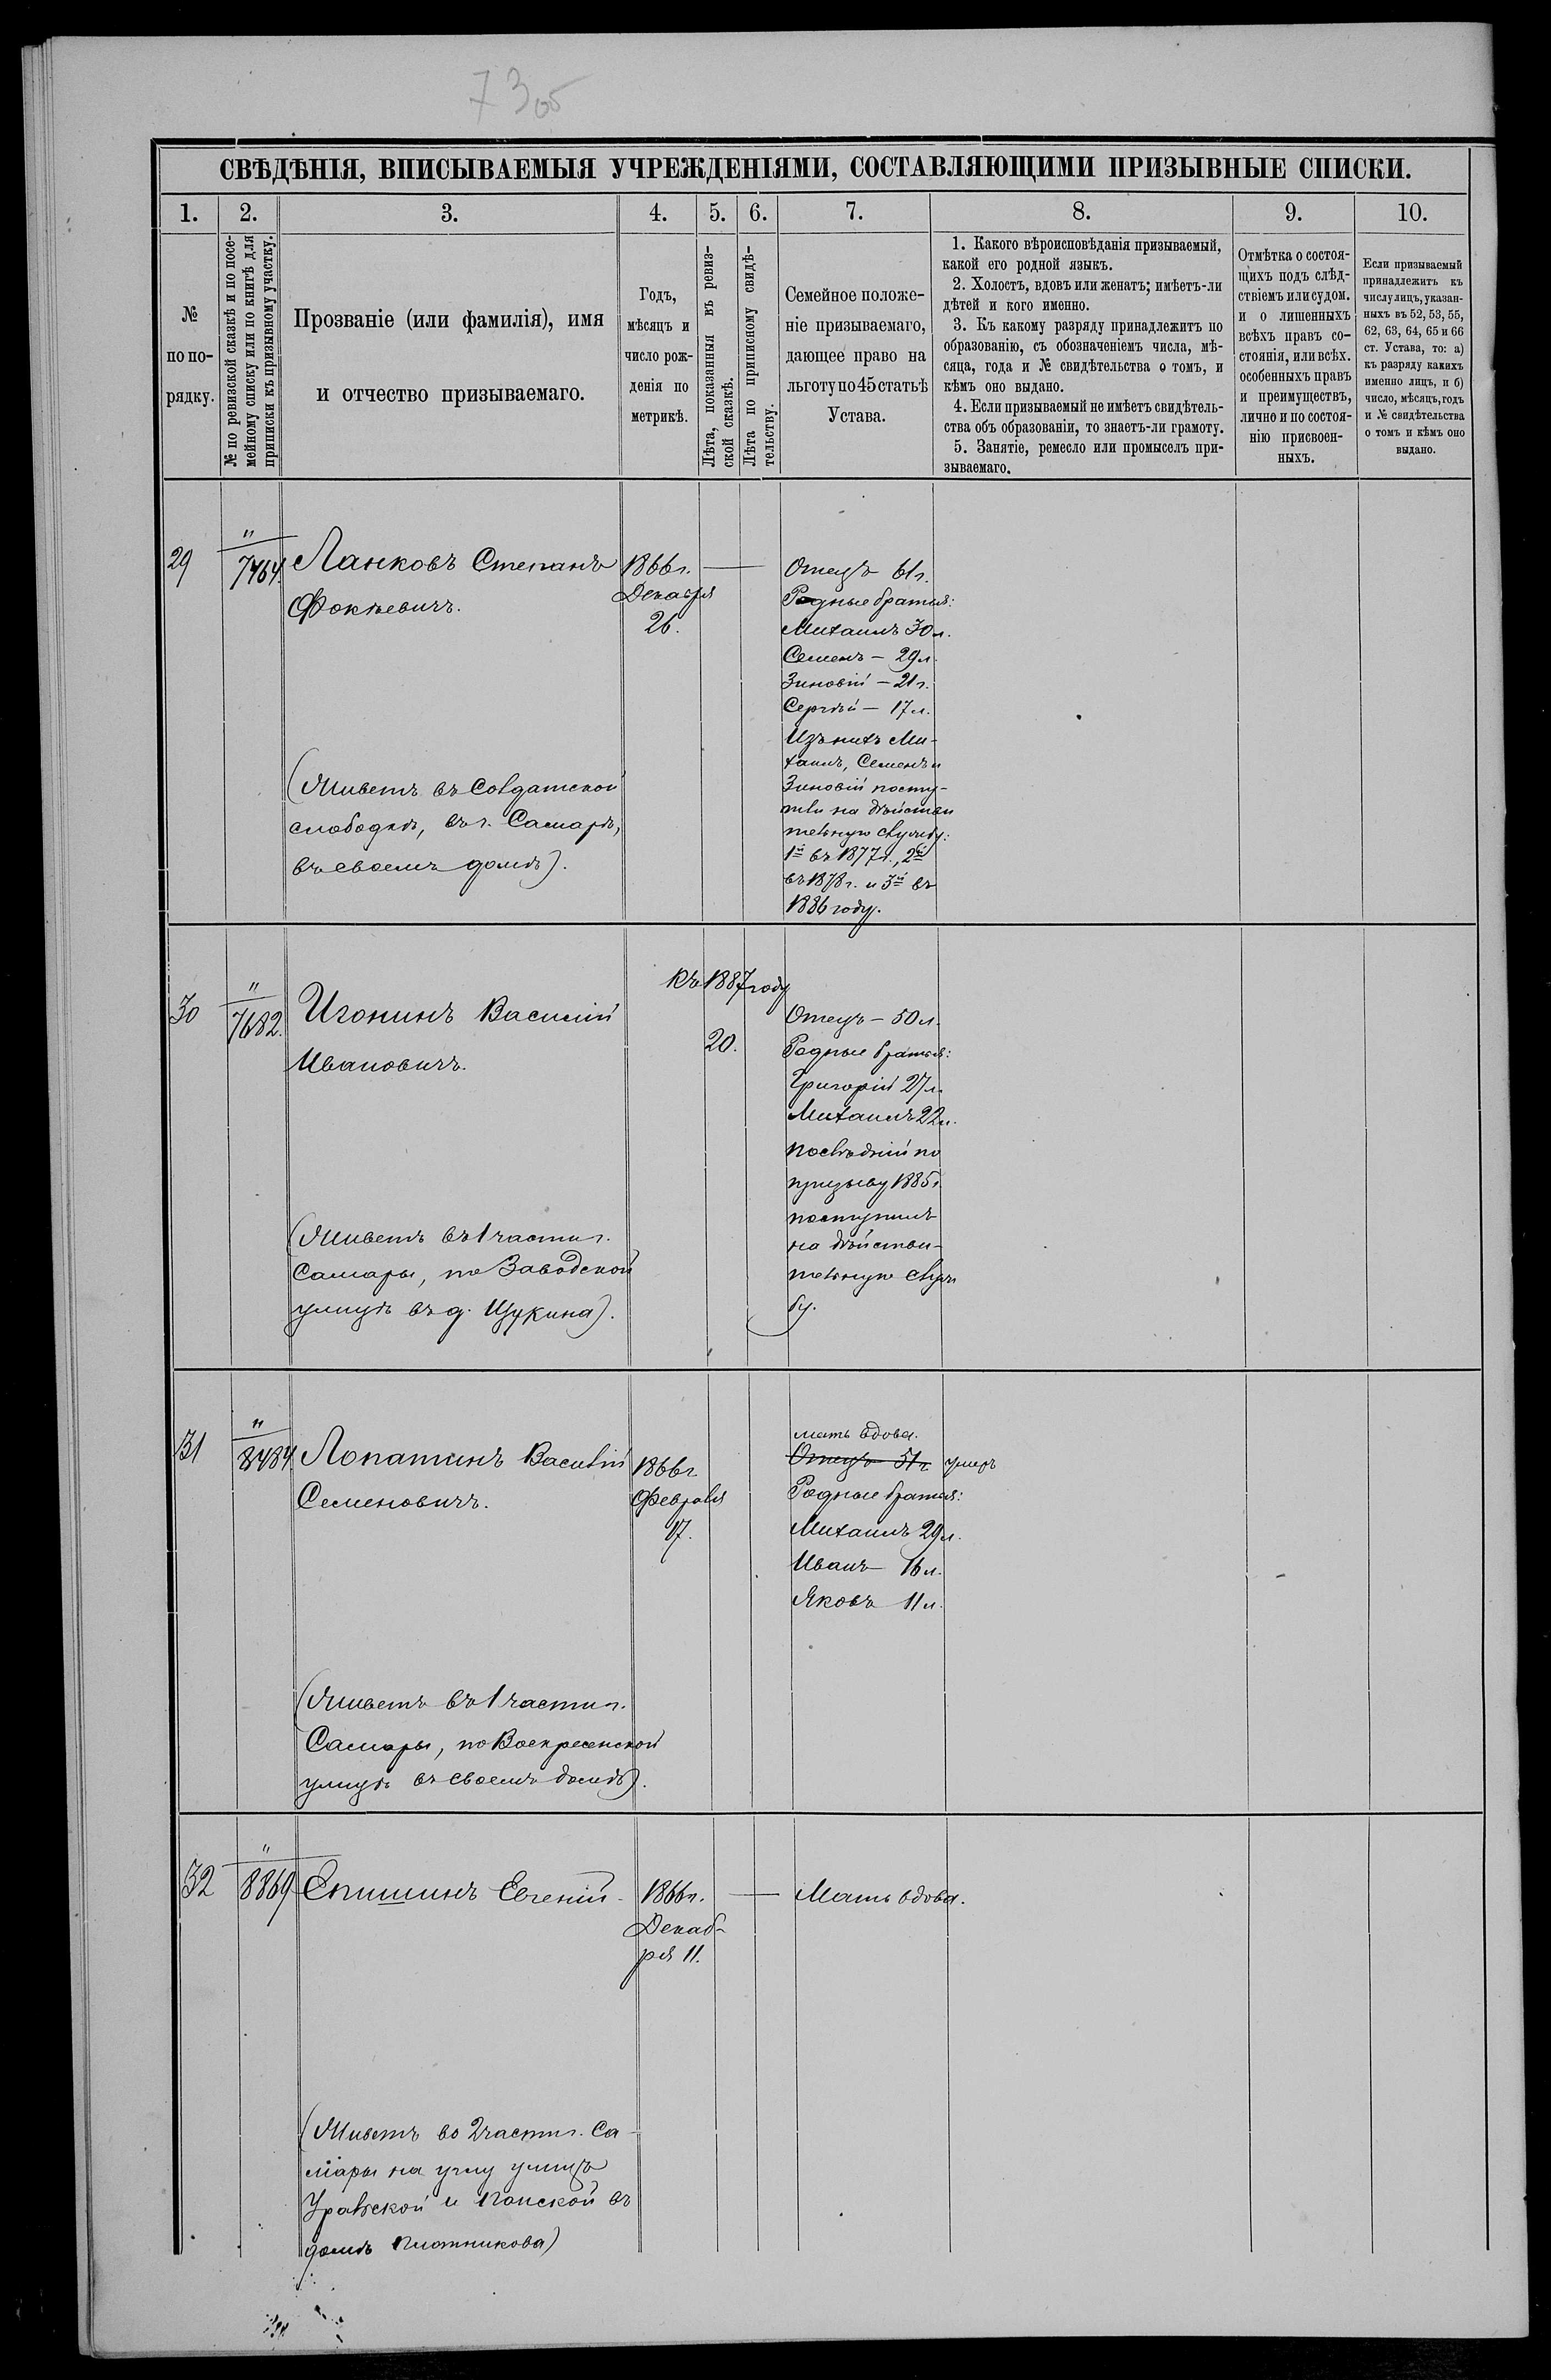 7305
СВѢДѢНІЯ, ВПИСЫВАЕМЫЯ УЧРЕЖДЕНІЯМИ, СОСТАВЛЯЮЩИМИ ПРИЗЫВНЫЕ СПИСКИ.
1. 2. 3. 4. 5. 6. 7. 8. 9. 10.
№
по по-
рядку.
№ по ревизской сказкѣ и по посе-
мейному списку или по книгѣ для
приписки къ призывному участку.
Прозваніе (или фамилія), имя
и отчество призываемаго.
Годъ,
мѣсяцъ и
число рож-
денія по
метрикѣ.
Лѣта, показанныя въ ревиз-
ской сказкѣ.
Лѣта по приписному свидѣ-
тельству.
Семейное положе-
ніе призываемаго,
дающее право на
льготу по 45 статьѣ
Устава.
1. Какого вѣроисповѣданія призываемый,
какой его родной языкъ.
2. Холостъ, вдовъ или женатъ; имѣетъ-ли
дѣтей и кого именно.
3. Къ какому разряду принадлежитъ по
образованію, съ обозначеніемъ числа, мѣ-
сяца, года и № свидѣтельства о томъ, и
кѣмъ оно выдано.
4. Если призываемый не имѣетъ свидѣтель-
ства объ образованіи, то знаетъ-ли грамоту.
5. Занятіе, ремесло или промыселъ при-
зываемаго.
Отмѣтка о состоя-
щихъ подъ слѣд-
ствіемъ или судом.
и о лишенныхъ
всѣхъ правъ со-
стоянія, или всѣх.
особенныхъ правъ
и преимуществъ,
лично и по состоя-
нію присвоен-
ныхъ.
Если призываемый
принадлежитъ къ
числу лицъ, указан-
ныхъ въ 52, 53, 55,
62, 63, 64, 65 и 66
ст. Устава, то: а)
къ разряду какихъ
именно лицъ, и б)
число, мѣсяцъ, годъ
и № свидѣтельства
о томъ и кѣмъ оно
выдано.
29
"
7464.
Ланковъ Степанъ
Фокѣевичъ.
(Живетъ въ Солдатской
слободкѣ, въ г. Самарѣ,
въ своемъ домѣ).
1866 г.
Декабря
26.
Отецъ 61 г.
Родные братья:
Михаилъ 30 л.
Семенъ – 29 л.
Зиновій – 21 г.
Сергѣй – 17 л.
Изъ нихъ Ми-
хаилъ, Семенъ и
Зиновій посту-
пили на дѣйстви
тельную службу:
1й въ 1877 г., 2й
въ 1878 г. и 3й въ
1886 году.
30
"
7682.
Игонинъ Василій
Ивановичъ.
(Живетъ въ 1 части г.
Самары, по Заводской
улицѣ въ д. Щукина).
Къ 1887 году
20.
Отецъ – 50 л.
Родные братья:
Григорій 27 л.
Михаилъ 22 л.
послѣдній по
призыву 1885 г.
поступилъ
на дѣйстви-
тельную служ
бу.
31
"
8484.
Лопатинъ Василій
Семеновичъ.
(Живетъ въ 1 части г.
Самары, по Воскресенской
улицѣ въ своемъ домѣ).
1866 г.
Февраля
17.
мать вдова.
Отецъ 51 г. умеръ
Родные братья:
Михаилъ 29 л.
Иванъ 16 л.
Яковъ 11 л.
32
"
8869
Епишинъ Евгеній.
(Живетъ во 2 части г. Са-
мары на углу улицъ
Уральской и Панской въ
домѣ Плотникова)
1866 г.
Декаб-
ря 11.
Мать вдова.